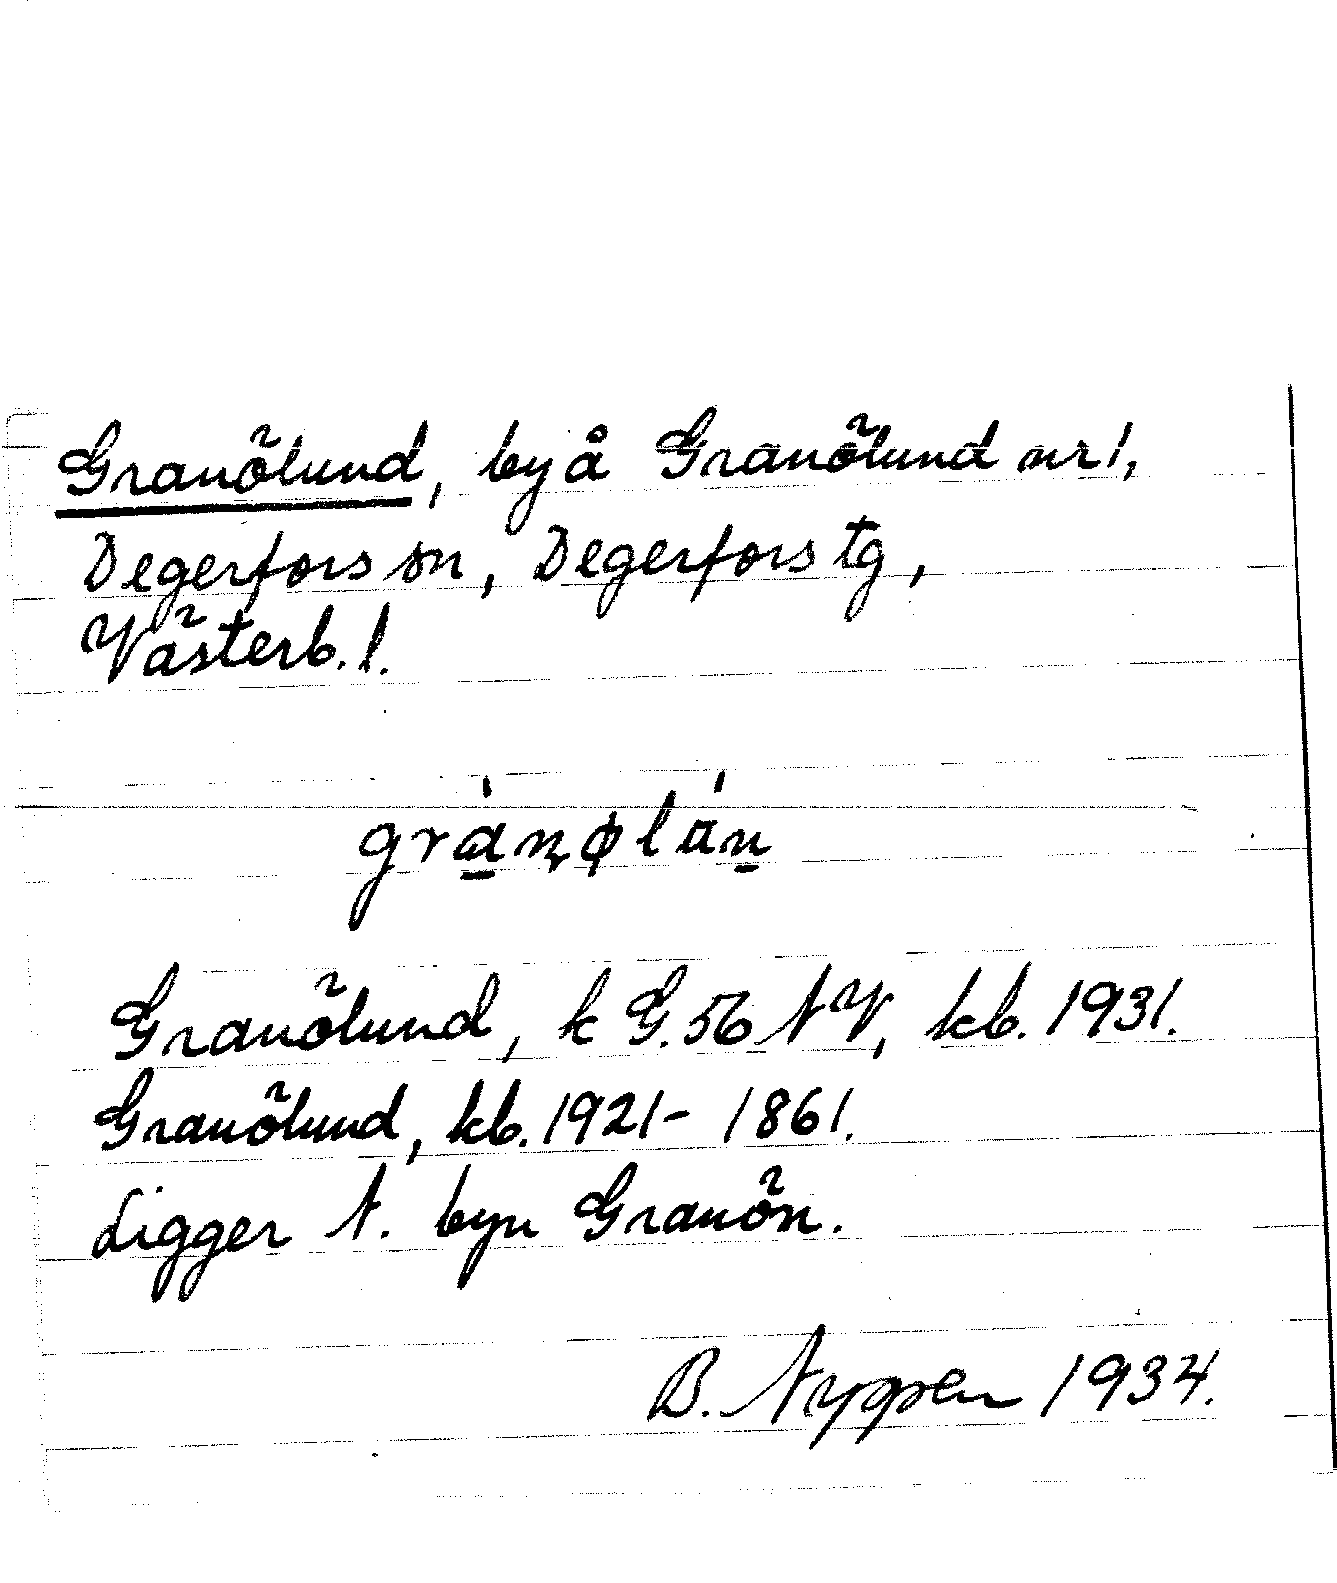 Granölund, by å Granölund nr 1,
Degerfors sn, Degerfors tg,
Västerb. l.
Granölund, k G. 56 NV, kb. 1931.
Granölund, kb. 1921 - 1861.
Ligger N. byn Granön.
B. Nygren 1934.